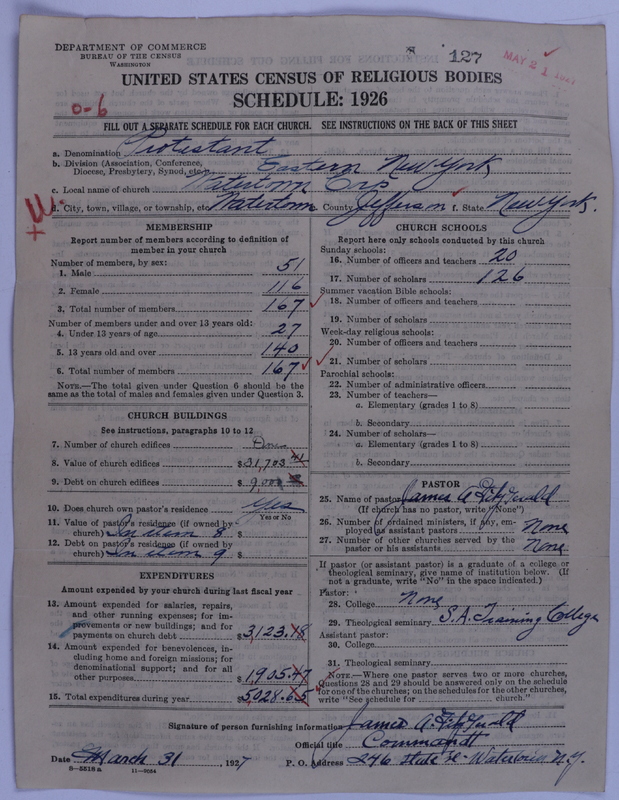 DEPARTMENT OF COMMERCE
BUREAU OF THE CENSUS
WASHINGTON
127
MAY 21 1927
UNITED STATES CENSUS OF RELIGIOUS BODIES
SCHEDULE: 1926
0-6
FILL OUT A SEPARATE SCHEDULE FOR EACH CHURCH. SEE INSTRUCTIONS ON THE BACK OF THIS SHEET
a. Denomination Protestant
b. Division (Association, Conference, Diocese, Presbytery, Synod, etc.) Eastern New York
c. Local name of church Watertown Crps
d. City, town, village, or township, etc Watertown County Jefferson f. State New York.
MEMBERSHIP
Report number of members according to definition of
member in your church
Number of members, by sex:
1. Male 51
2. Female 116
3. Total number of members 167
Number of members under and over 13 years old:
4. Under 13 years of age 27
5. 13 years old and over 140
6. Total number of members 167
NOTE.—The total given under Question 6 should be
same as the total of males and females given under Question 3.
CHURCH BUILDINGS
See instructions, paragraphs 10 to 12
7. Number of church edifices
8. Value of church edifices $31,703
9. Debt on church edifices $9,000
10. Does church own pastor's residence Yes
Yes or No
11. Value of pastor's residence (if owned by
church) In item 8 $
12. Debt on pastor's residence (if owned by
church) In item 9 $
EXPENDITURES
Amount expended by your church during last fiscal year
13. Amount expended for salaries, repairs,
and other running expenses; for im-
provements or new buildings; and for
payments on church debt $3,123.18
14. Amount expended for benevolences, in-
cluding home and foreign missions; for
denominational support; and for all
other purposes 1,905.47
15. Total expenditures during year $5028.65
CHURCH SCHOOLS
Report here only schools conducted by this church
Sunday schools:
16. Number of officers and teachers 20
17. Number of scholars 126
Summer vacation Bible schools:
18. Number of officers and teachers
19. Number of scholars
Week-day religious schools:
20. Number of officers and teachers
21. Number of scholars
Parochial schools:
22. Number of administrative officers
23. Number of teachers—
a. Elementary (grades 1 to 8)
b. Secondary
24. Number of scholars—
a. Elementary (grades 1 to 8)
b. Secondary
PASTOR
25. Name of pastor James A Fitzgerald
(If church has no pastor, write "None")
26. Number of ordained ministers, if any, em-
ployed as assistant pastors None
27. Number of other churches served by the
pastor or his assistants None
If pastor (or assistant pastor) is a graduate of a college or
theological seminary, give name of institution below. (If
not a graduate, write "No" in the space indicated.)
Pastor:
28. College None
29. Theological seminary S.A. Training College
Assistant pastor:
30. College
31. Theological seminary
NOTE.—Where one pastor serves two or more churches,
Questions 28 and 29 should be answered only on the schedule
for one of the churches; on the schedules for the other churches,
write "See schedule for church."
Signature of person furnishing information James A. Fitzgerald
Official title Commandt
Date March 31, 1927 P. O. Address 246 State St- Watertown N.Y.
8-5518a 11-9084